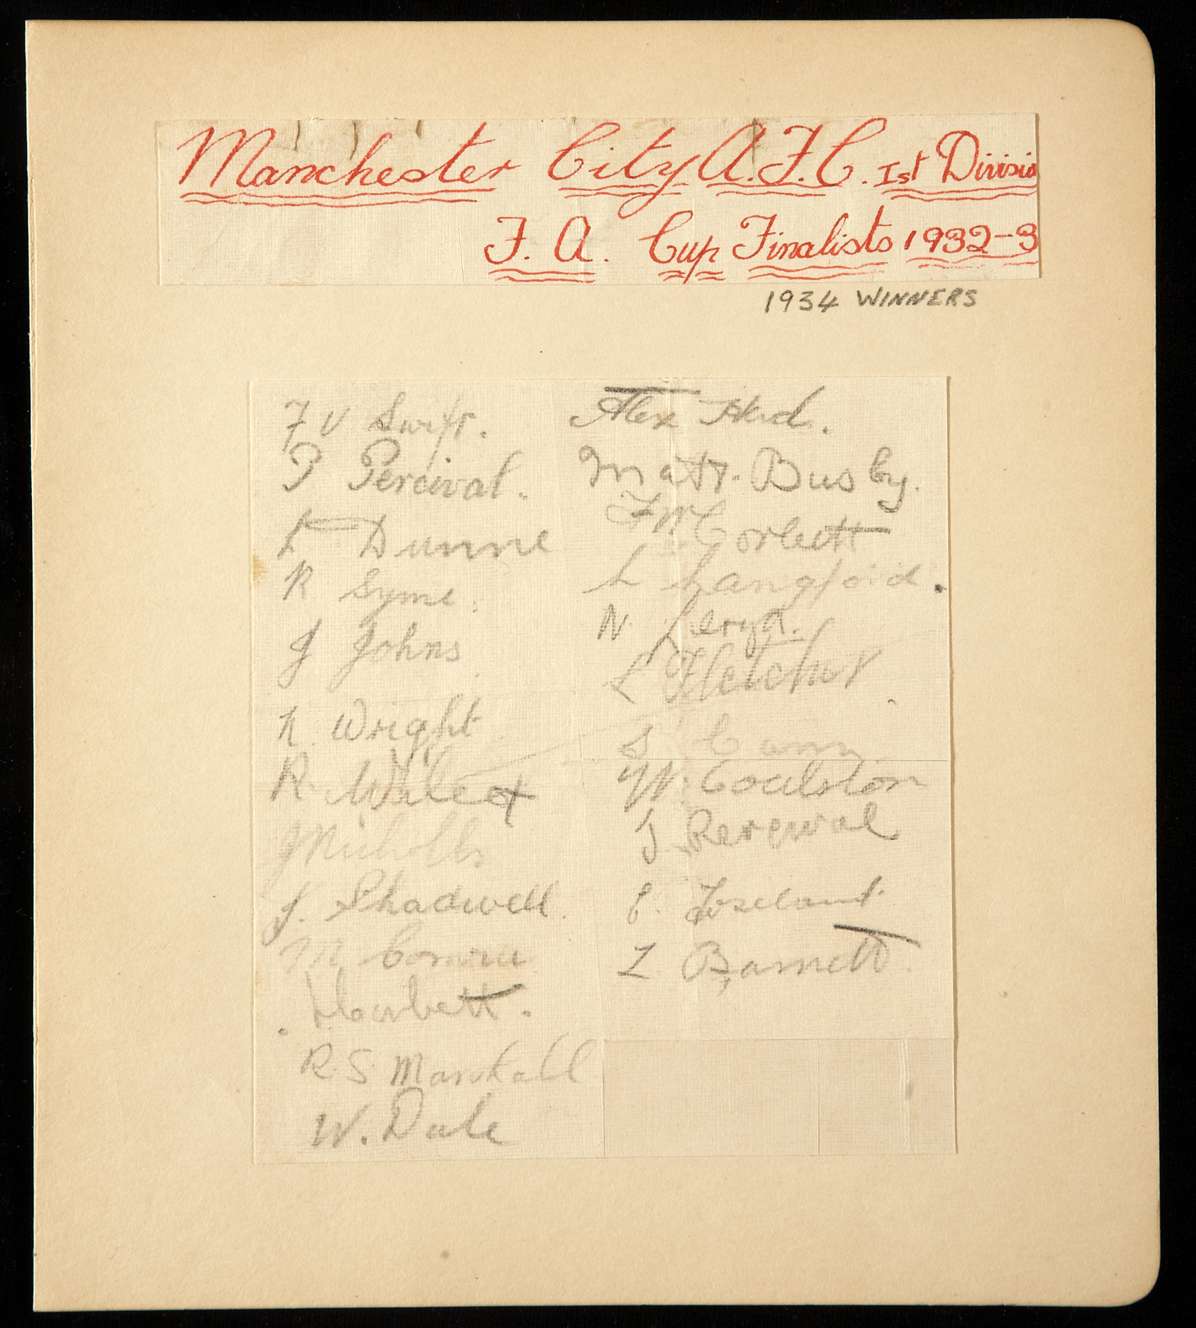 Manchester City A.F.C. Ist Divisio
F. A. Cup Finalists 1932-3
1934 WINNERS
F V Swift.
P Percival.
L Dunne
R Syme.
J Johns
N. Wright
R.
J Nicholls
J. Shadwell.
M
Corbett.
R. S Marshall
W. Dale
Alex Herd.
Matt. Busby.
F W Corbett
L Langford.
N.
L Fletcher
S Cann
W. Coulston
J. Percival
E. Toseland.
L Barnett.